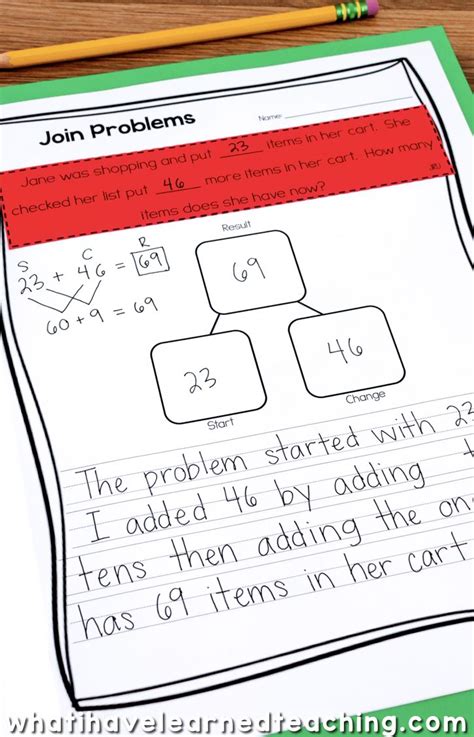 Join Problems
Name:
Jane was shopping and put 23 items in her cart. She
checked her list put 46 more items in her cart. How many
items does she have now?
JRU
S C R
23 + 46 = 69
60 + 9 = 69
Result
69
23
Start
46
Change
The problem started with 23
I added 46 by adding t
tens then adding the on
has 69 items in her cart
whatihavelearnedteaching.com